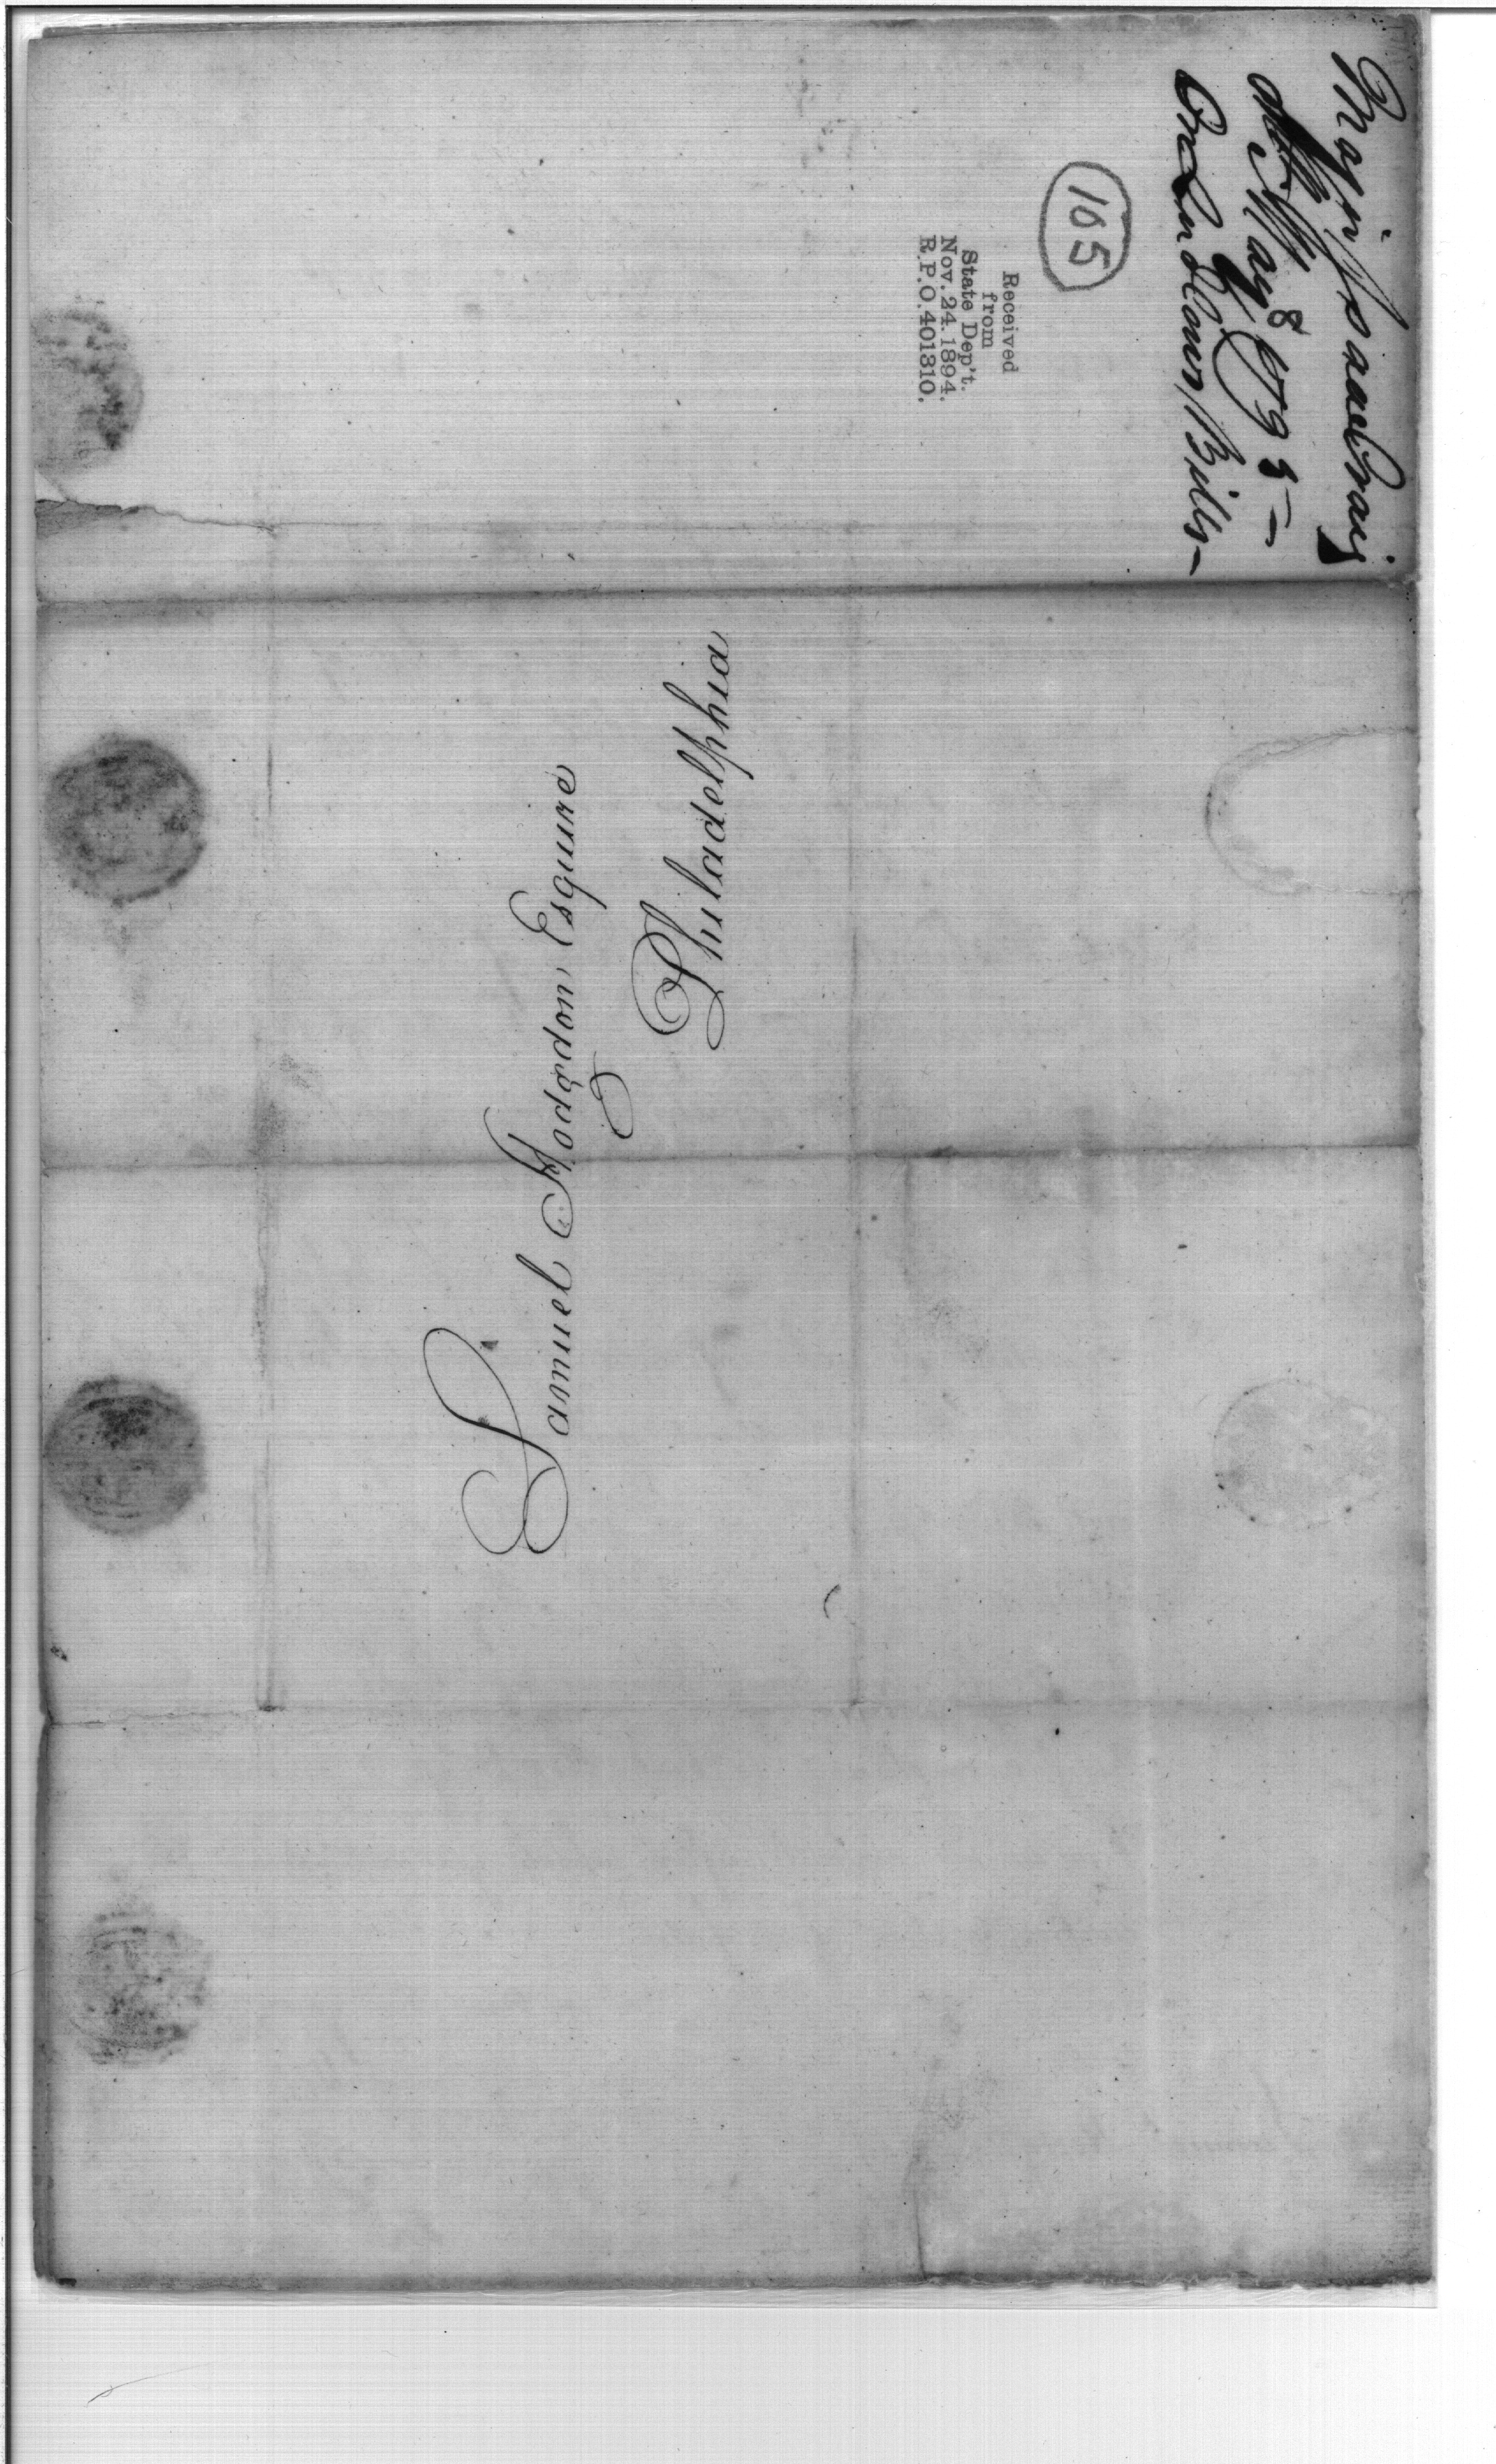 Major Isaac Craig
May 8 1795 -
Bills -
105
Received
from
State Dep't.
Nov. 24. 1894.
R.P.O. 401310.
Samuel Hodgdon Esquire
Philadelphia